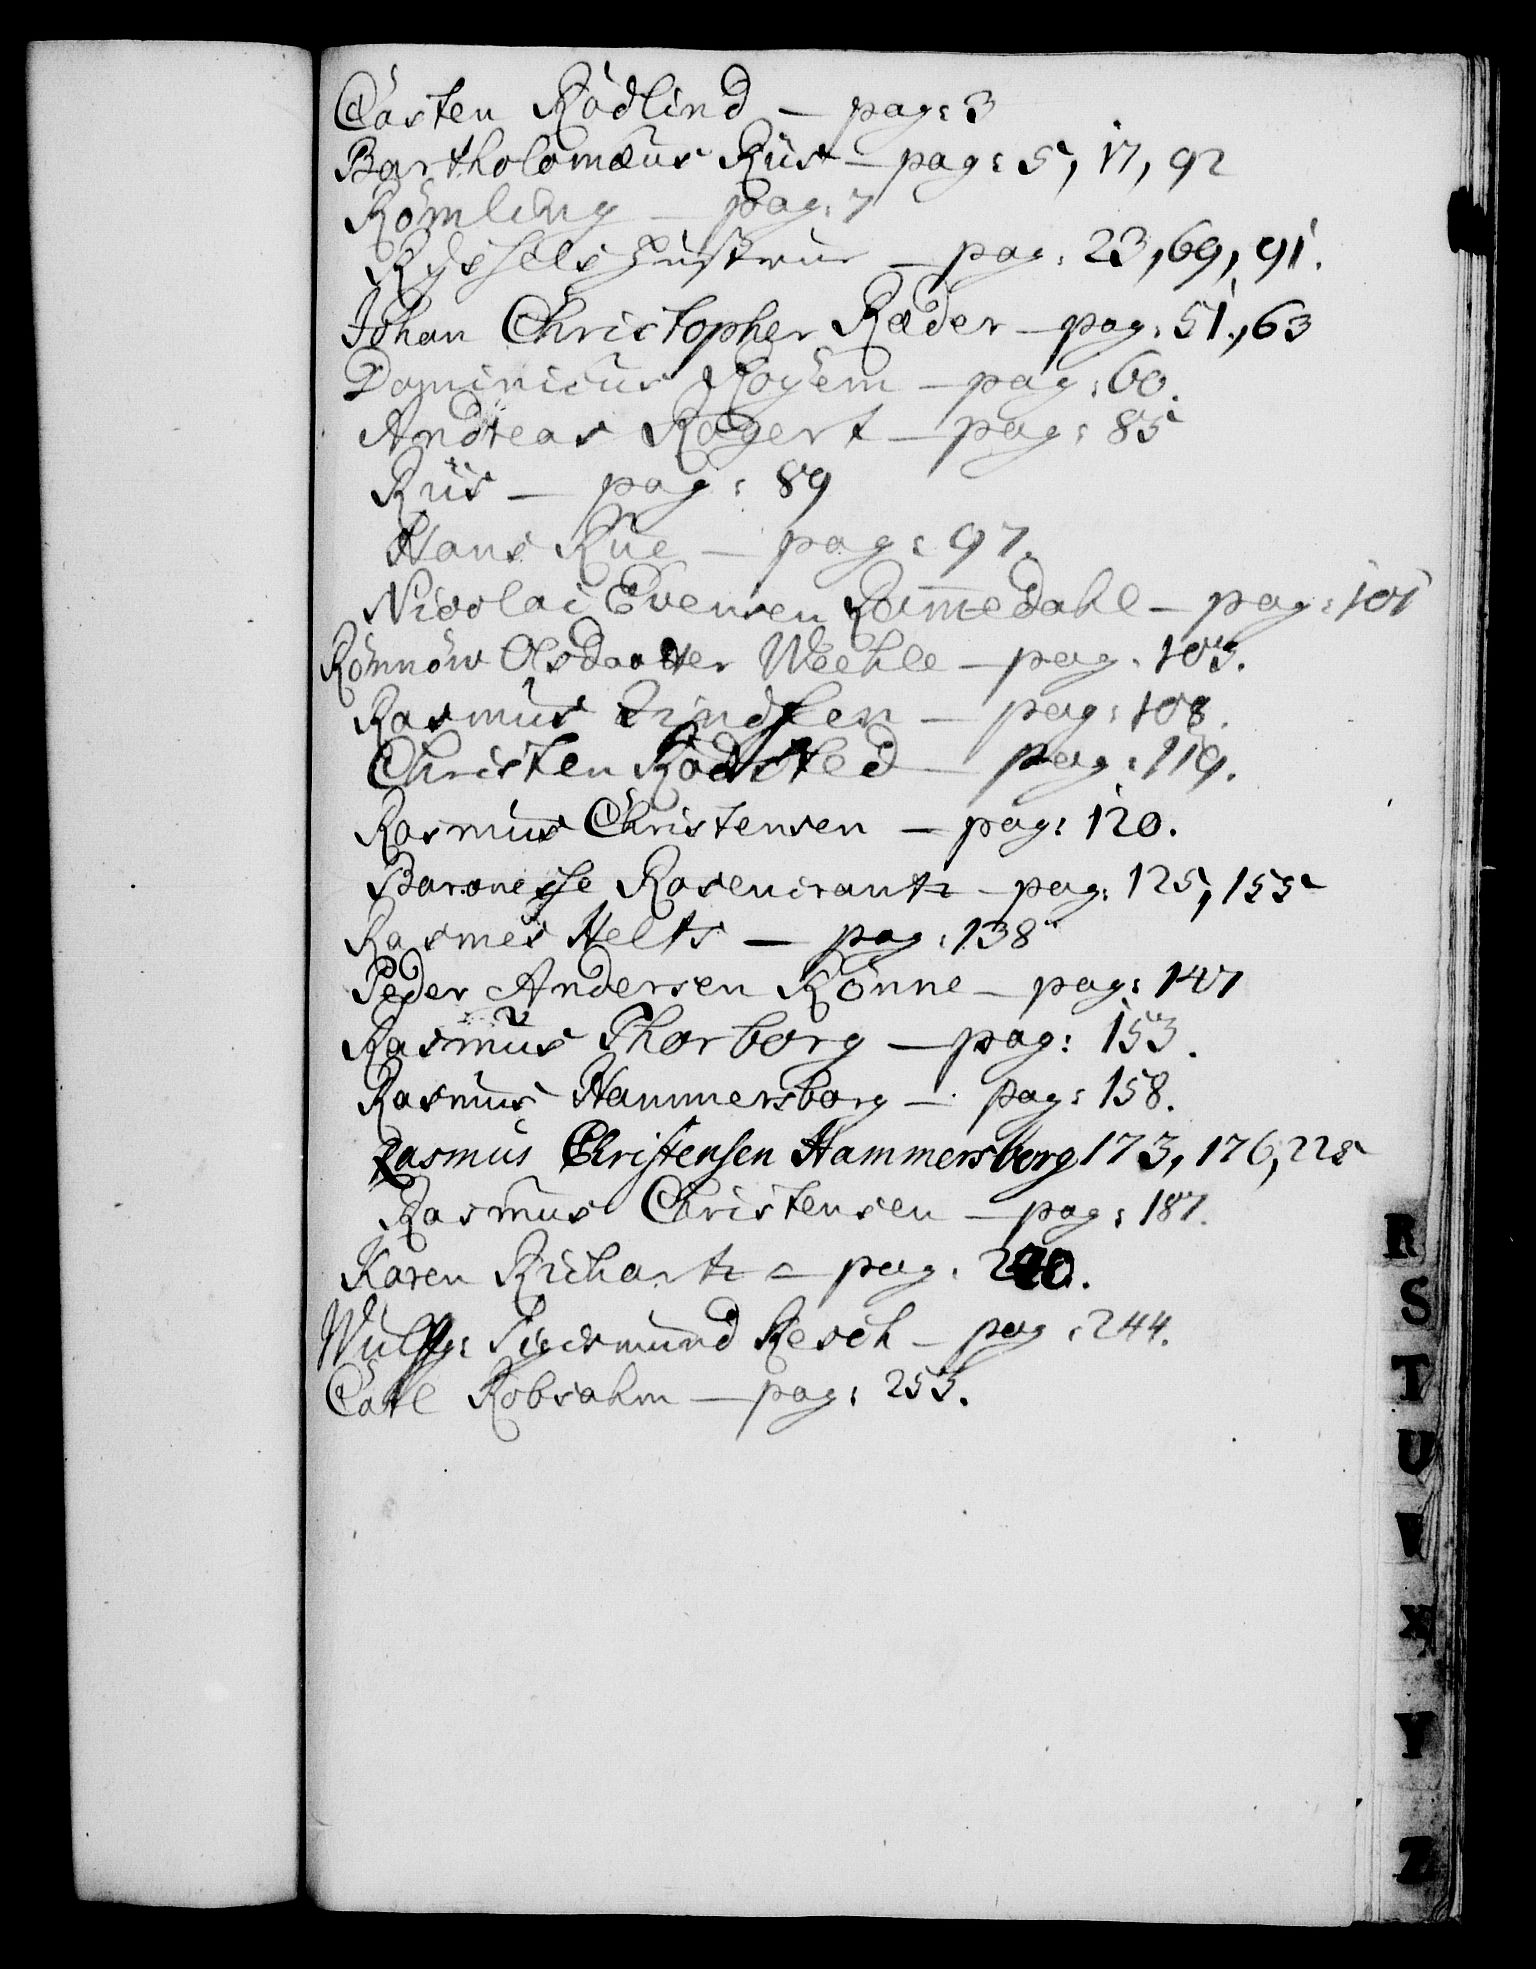 Carsten Rödlind — pag: 3
Bartholomæus Riis — pag: 5, 17, 92
Römling — pag: 7
— pag: 23, 69, 91.
Johan Christopher Ræder — pag: 51, 63
Dominicus Royem — pag: 60.
Andreas Rogert — pag: 85
Riis — pag: 89
Hans Rüe — pag: 97.
Nicolai Evensen Ramedahl — pag: 101
Rönnöw Olsdaatter Weehle — pag: 103.
Rasmus — pag: 108.
Christen Rodsted — pag: 119.
Rasmus Christensen — pag: 120.
Baronesse Rosencrantz — pag: 125, 155
Rasmes Helts — pag: 138
Peder Andersen Rönne — pag: 147
Rasmus Thorborg — pag: 153.
Rasmus Hammersborg — pag: 158.
Rasmus Christensen Hammersborg 173, 176, 228
Rasmus Christensen — pag: 187.
Karen Richartz — pag.
Wulffg: Sigismund Resch — pag: 244.
Carl Robsahm — pag: 255.
R
S
T
U
V
X
Y
Z